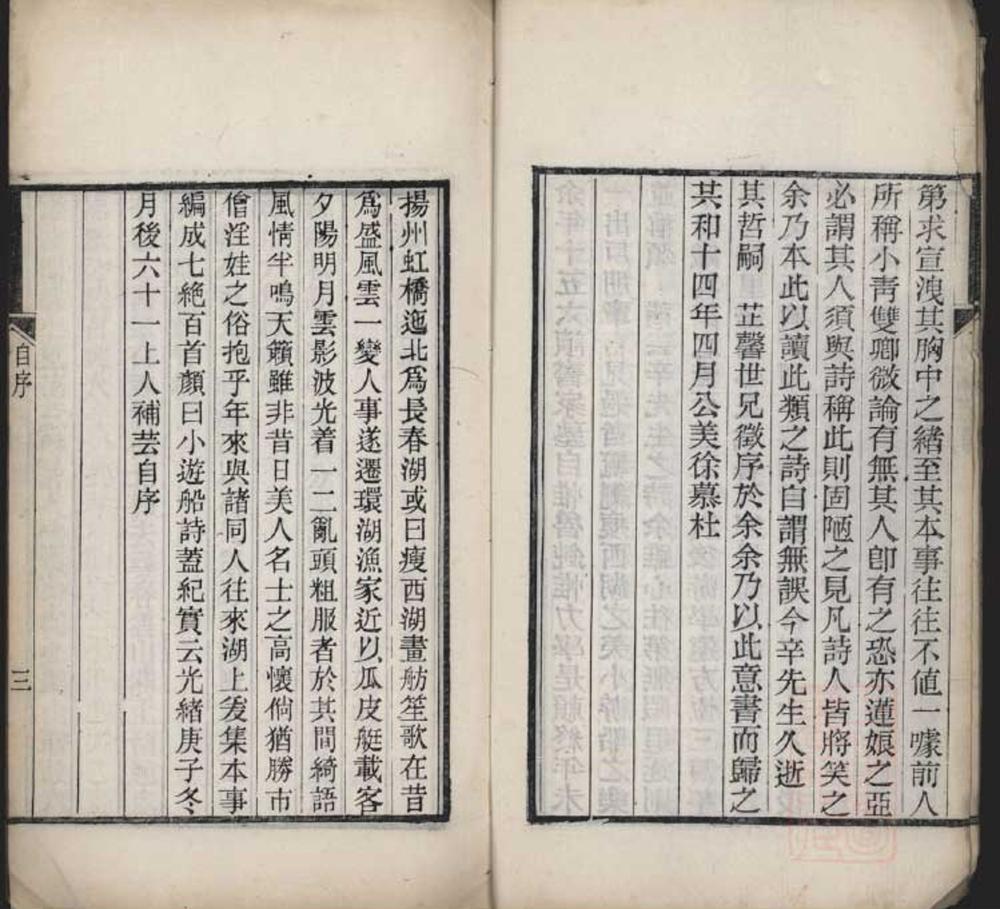 第求宣洩其胸中之緒至其本事往往不值一噱前人
所稱小青雙卿微論有無其人卽有之恐亦蓮娘之亞
必謂其人須與詩稱此則固陋之見凡詩人皆將笑之
余乃本此以讀此類之詩自謂無誤今辛先生久逝
其哲嗣 芷馨世兄徵序於余余乃以此意書而歸之
共和十四年四月公美徐慕杜
揚州虹橋迤北爲長春湖或曰瘦西湖畫舫笙歌在昔
爲盛風雲一變人事遂遷環湖漁家近以瓜皮艇載客
夕陽明月雲影波光着一二亂頭粗服者於其間綺語
風情半鳴天籟雖非昔日美人名士之高懷倘猶勝市
儈淫娃之俗抱乎年來與諸同人往來湖上爰集本事
編成七絶百首顏曰小遊船詩蓋紀實云光緒庚子冬
月後六十一上人補芸自序
自序
三